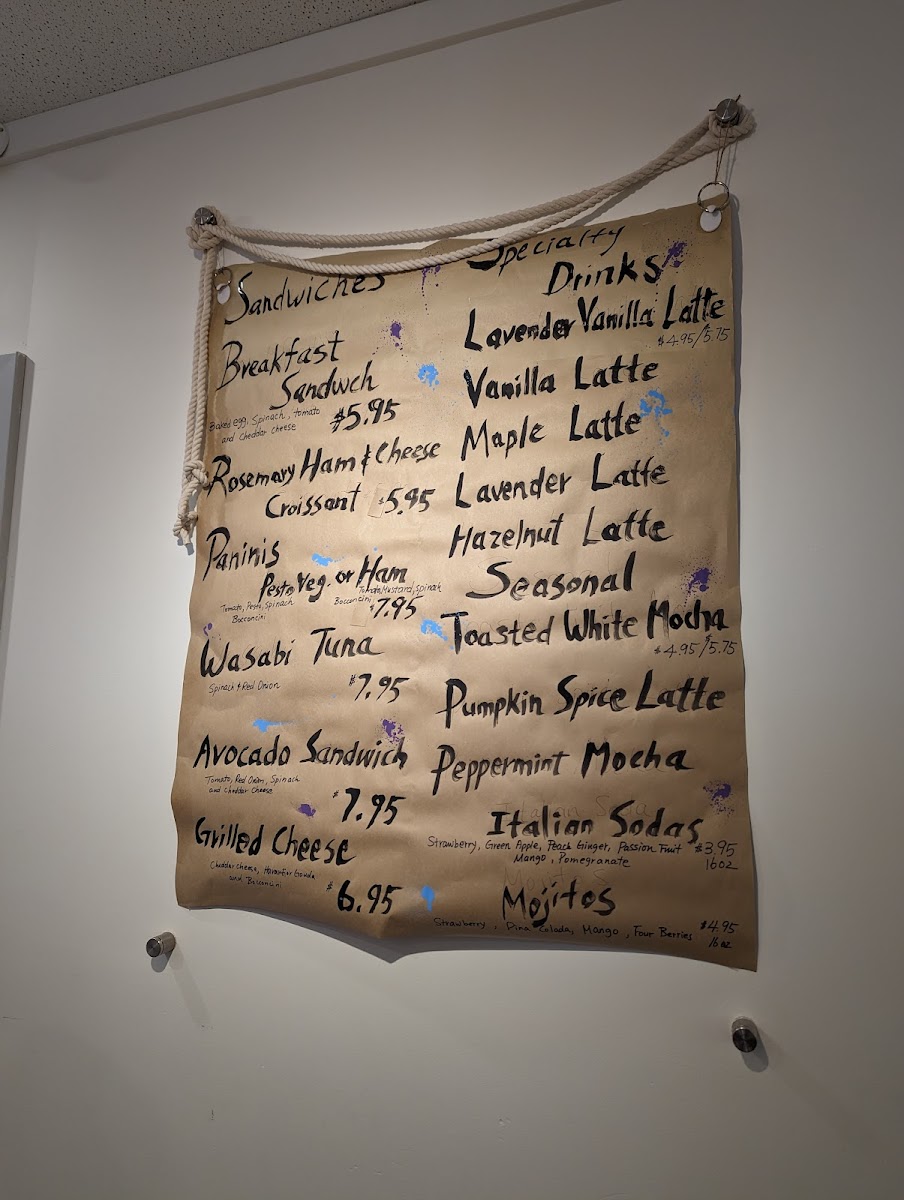 Sandwiches
Breakfast
Sandwch
Baked egg, Spinach, tomato
and cheddar cheese
$5.95
Rosemary Ham & Cheese
Croissant $5.95
Paninis
Pesto Veg. or Ham
Tomato, Pesto, Spinach
Bocconcini
Tomato, Mustard, Spinach
Bocconcini
$7.95
Wasabi Tuna
Spinach & Red Onion
$7.95
Avocado Sandwich
Tomato, Red Onion, Spinach
and Cheddar Cheese
$7.95
Grilled Cheese
Cheddar cheese, Gouda
and Bocconcini
$6.95
Specialty
Drinks
Lavender Vanilla Latte
$4.95/5.75
Vanilla Latte
Maple Latte
Lavender Latte
Hazelnut Latte
Seasonal
Toasted White Mocha
$4.95/$5.75
Pumpkin Spice Latte
Peppermint Mocha
Italian Sodas
Strawberry, Green Apple, Peach Ginger, Passion Fruit
Mango, Pomegranate
$3.95
16oz
Mojitos
Strawberry, Pina Colada, Mango, Four Berries
$4.95
16oz